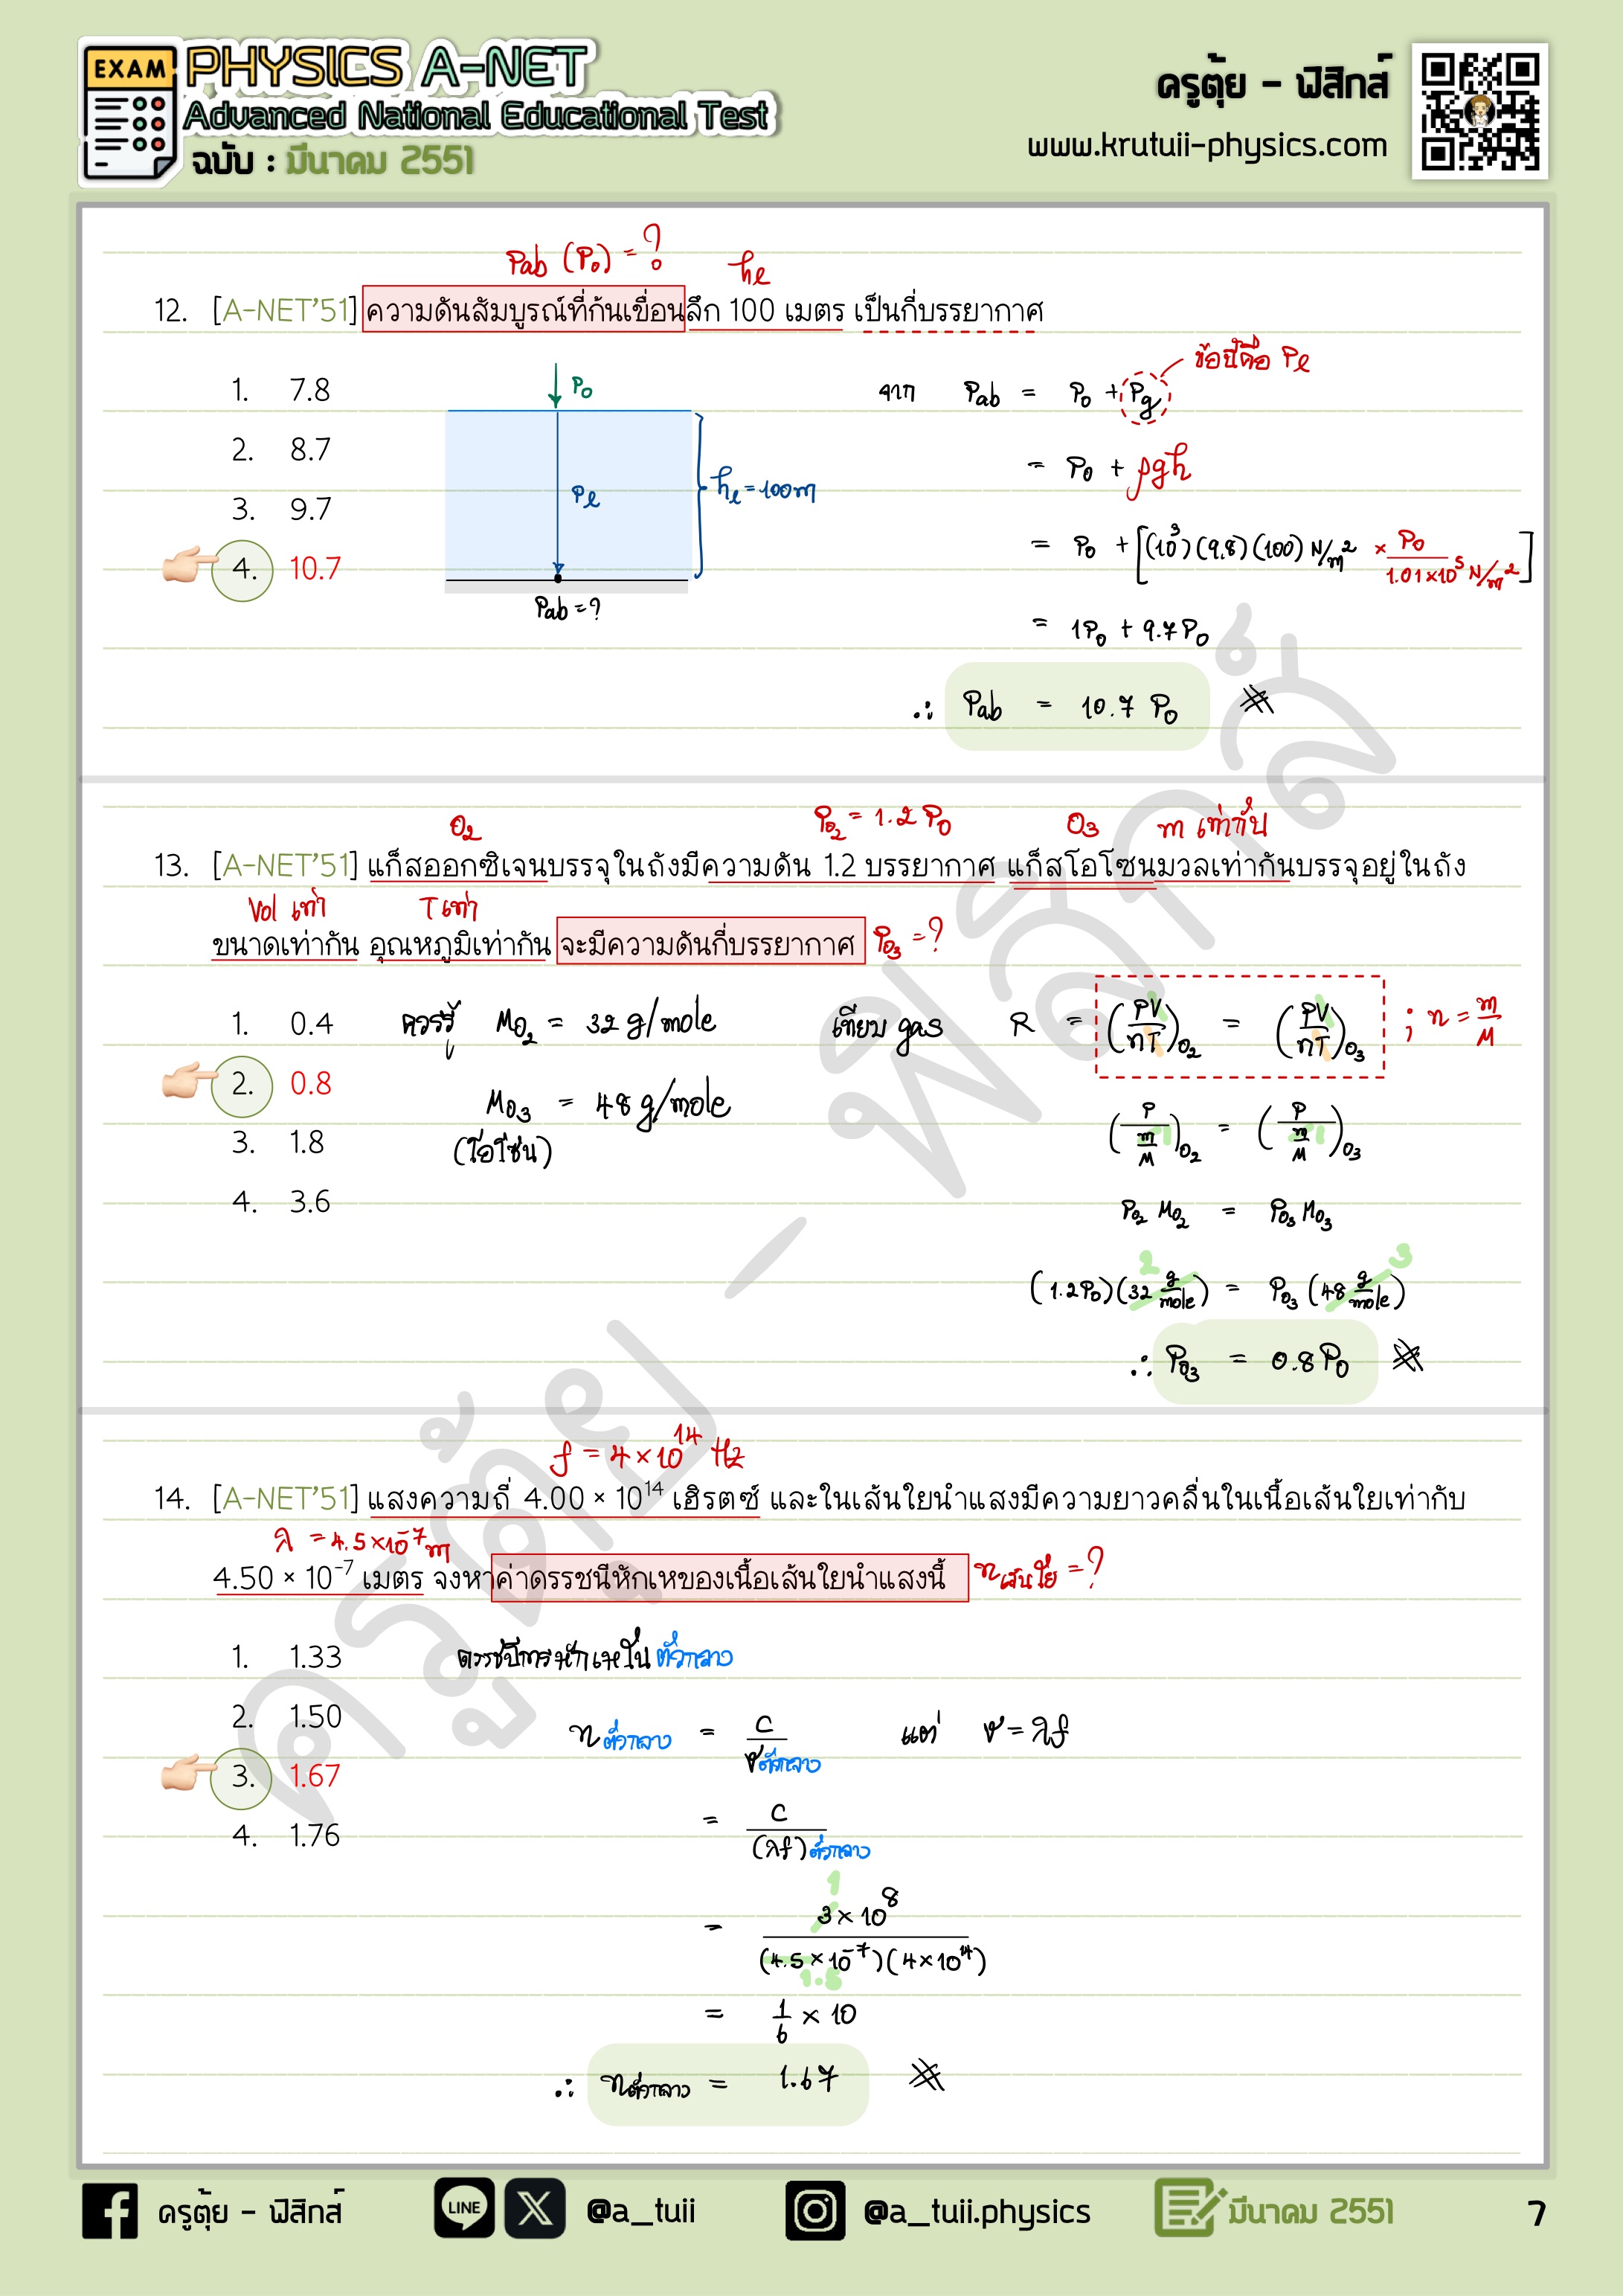 EXAM
PHYSICS A-NET
Advanced National Educational Test
ฉบับ : มีนาคม 2551
ครูตุ้ย - ฟิสิกส์
www.krutuii-physics.com
Pab (P₀) = ?
hℓ
12. [A-NET'51] ความดันสัมบูรณ์ที่ก้นเขื่อนลึก 100 เมตร เป็นกี่บรรยากาศ
1. 7.8
2. 8.7
3. 9.7
4. 10.7
P₀
Pℓ
hℓ = 100 m
Pab = ?
ข้อนี้คือ Pℓ
จาก Pab = P₀ + Pg
= P₀ + ρgh
= P₀ + [(10³)(9.8)(100) N/m² × P₀/1.01×10⁵ N/m²]
= 1P₀ + 9.7P₀
∴ Pab = 10.7 P₀
O₂ P_O₂ = 1.2 P₀ O₃ m เท่ากัน
13. [A-NET'51] แก็สออกซิเจนบรรจุในถังมีความดัน 1.2 บรรยากาศ แก็สโอโซนมวลเท่ากันบรรจุอยู่ในถัง
Vol เท่า T เท่า
ขนาดเท่ากัน อุณหภูมิเท่ากัน จะมีความดันกี่บรรยากาศ P_O₃ = ?
1. 0.4
2. 0.8
3. 1.8
4. 3.6
ควรรู้ M_O₂ = 32 g/mole
M_O₃ = 48 g/mole
(โอโซน)
เทียบ gas R = (PV/nT)_O₂ = (PV/nT)_O₃ ; n = m/M
(P/(m/M))_O₂ = (P/(m/M))_O₃
P_O₂ M_O₂ = P_O₃ M_O₃
2 3
(1.2P₀)(32 g/mole) = P_O₃ (48 g/mole)
∴ P_O₃ = 0.8 P₀
f = 4 × 10¹⁴ Hz
14. [A-NET'51] แสงความถี่ 4.00 × 10¹⁴ เฮิรตซ์ และในเส้นใยนำแสงมีความยาวคลื่นในเนื้อเส้นใยเท่ากับ
λ = 4.5×10⁻⁷ m
4.50 × 10⁻⁷ เมตร จงหาค่าดรรชนีหักเหของเนื้อเส้นใยนำแสงนี้ n เส้นใย = ?
1. 1.33
2. 1.50
3. 1.67
4. 1.76
ดรรชนีการหักเหใน ตัวกลาง
n ตัวกลาง = c/v ตัวกลาง แต่ v = λf
= c/(λf) ตัวกลาง
1
= 3 × 10⁸/(4.5 × 10⁻⁷)(4 × 10¹⁴)
1.5
= 1/6 × 10
∴ n ตัวกลาง = 1.67
ครูตุ้ย - ฟิสิกส์
ครูตุ้ย - ฟิสิกส์
LINE
@a_tuii
@a_tuii.physics
มีนาคม 2551
7